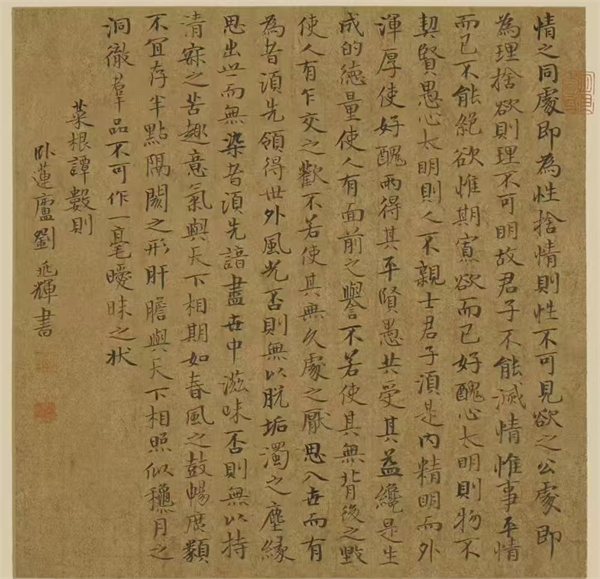 情之同處即為性捨情則性不可見欲之公處即
為理捨欲則理不可明故君子不能滅情惟事平情
而已不能絕欲惟期寡欲而已好醜心太明則物不
契賢愚心太明則人不親士君子須是内精明而外
渾厚使好醜兩得其平賢愚共受其益纔是生
成的德量使人有面前之譽不若使其無背後之毀
使人有乍交之歡不若使其無久處之厭思入世而有
為者須先領得世外風光否則無以脫垢濁之塵緣
思出世而無染者須先諳盡世中滋味否則無以持
清寂之苦趣意氣與天下相期如春風之鼓暢庶類
不宜存半點隔閡之形肝膽與天下相照似穐月之
洞徹羣品不可作一毫曖昧之状
菜根譚數則
卧蓮廬劉兆輝書